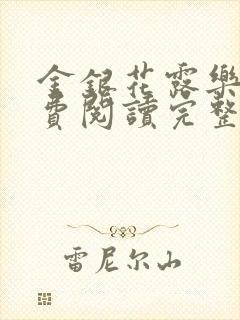 金銀花露樂
費閱讀完整
雷尼尔山